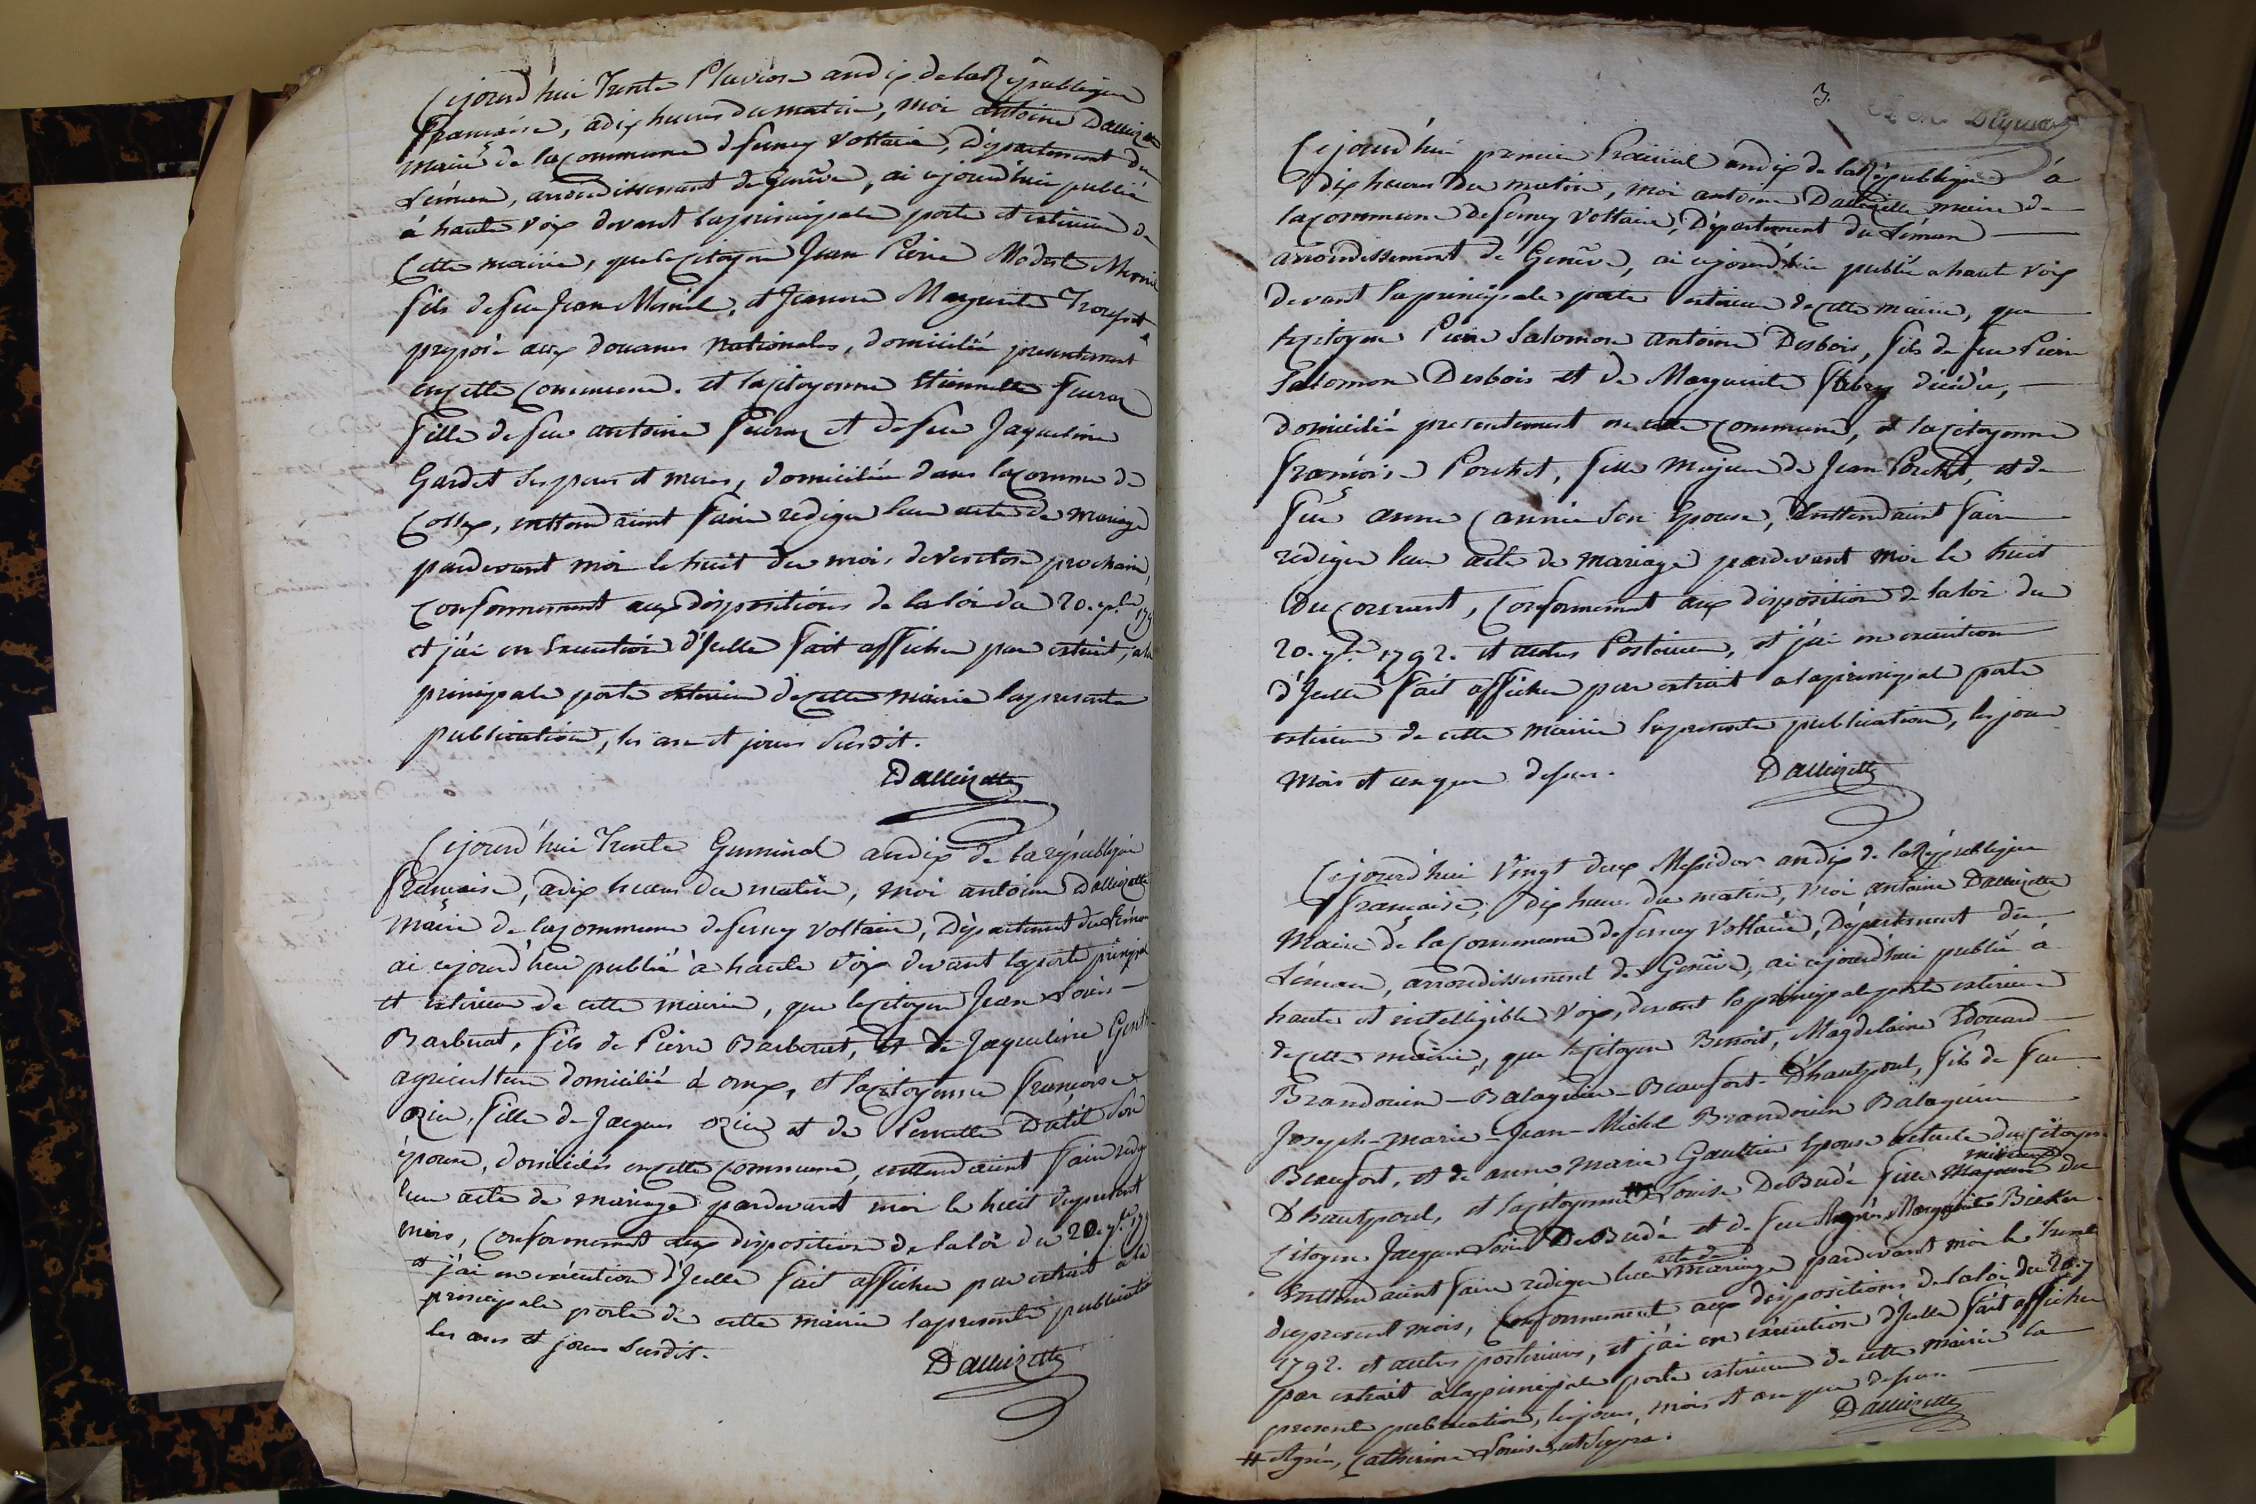 Cejourd'hui Trente Pluviose an dix de la République
française, à dix heures du matin, moi antoine Dallizette
maire de la commune de ferney Voltaire, Département du
Léman, arrondissement de Genêve, ai cejourd'hui publié
à haute voix devant la principale porte et exterieure de
Cette mairie, que le citoyen Jean Pierre Modeste
fils de feu Jean et Jeanne Marguerite
preposé aux douanes nationales, domicilié presentement
en cette Commune. et la citoyenne Etiennette
fille de feu antoine et de feue Jaqueline
Gardet ses pere et mere, domiciliée dans la comme de
Collex, entendaient faire rediger leur acte de mariage
pardevant moi le huit du mois de Ventose prochain,
Conformement aux dispositions de la loi du 20. 7bre 179
et j'ai en Execution d'Jcelle fait afficher par extrait, a la
principale porte exterieure de cette mairie la presente
publication, les an et jours susdit.
Dallizette
Cejourd'hui Trente Germinal an dix de la république
française, à dix heures du matin, moi antoine Dallizette
maire de la commune de ferney Voltaire, Département du Léman
ai cejourd'hui publié à haute voix devant la porte principale
et exterieure de cette mairie, que le citoyen Jean Louis
Barberat, fils de Pierre Barberat, et de Jaqueline
agriculteur domicilié à ornex, et la citoyenne françoise
fille de Jacques et de Pernette son
épouse, domiciliés en cette commune, entendaient faire rediger
leur acte de mariage pardevant moi le huit du present
mois, Conformement aux disposition de la loi du 20. 7bre 179
et j'ai en exécution d'Jcelle fait afficher par extrait a la
principale porte de cette mairie la presente publication
les ans et jours susdit.
Dallizette
3.
Cejourd'hui premier Prairial an dix de la République à
dix heures du matin, moi antoine Dallizette maire de
la commune de ferney Voltaire, Département du Léman
arrondissement de Genêve, ai cejourd'hui publié a haute voix
devant la principale porte exterieure de cette mairie, que
le citoyen Pierre Salomon antoine Desbois, fils de feu Pierre
Salomon Desbois et de Marguerite fabry décédée,
domicilié presentement en cette commune, et la citoyenne
françoise Porchet, fille majeure de Jean Porchet, et de
feue anne Cannier son Epouse, Entendaient faire
rédiger leur acte de mariage pardevant moi le huit
du courant, Conformement aux disposition de la loi du
20. 7bre 1792. et autres Posterieures, et j'ai en execution
d'Jcelle fait afficher par extrait a la principal porte
exterieure de cette mairie la presente publication, les jour
mois et an que dessus.
Dallizette
Cejourd'hui Vingt deux Messidor an dix de la République
française, dix heures du matin, moi antoine Dallizette
Maire de la Commune de ferney Voltaire, Département du
Léman, arrondissement de Genêve, ai cejourd'hui publié à
haute et intelligible voix, devant la principale porte exterieure
de cette mairie, que le citoyen Benoit, Magdelaine Edouard
Brandouin-Balaguier-Beaufort-D'hautpoul, fils de feu
Joseph-marie-Jean-Michel Brandouin Balaguier
Beaufort, et de anne marie Gaultier Epouse actuelle du citoyen
D'hautpoul, et la citoyenne # Louise DeBudé fille majeure mineure du
Citoyen Jacques Louis DeBudé et de feue Agnés Marguerite
Entendaient faire rediger leur acte de mariage pardevant moi le trente
du present mois, Conformement aux dispositions de la loi du 20. 7
1792. et autres posterieurs, et j'ai en exécution d'Jcelle fait afficher
par extrait a la principale porte exterieure de cette mairie la
presente publication, les jour, mois et an que dessus.
Dallizette
# Agnés, Catherine Louise